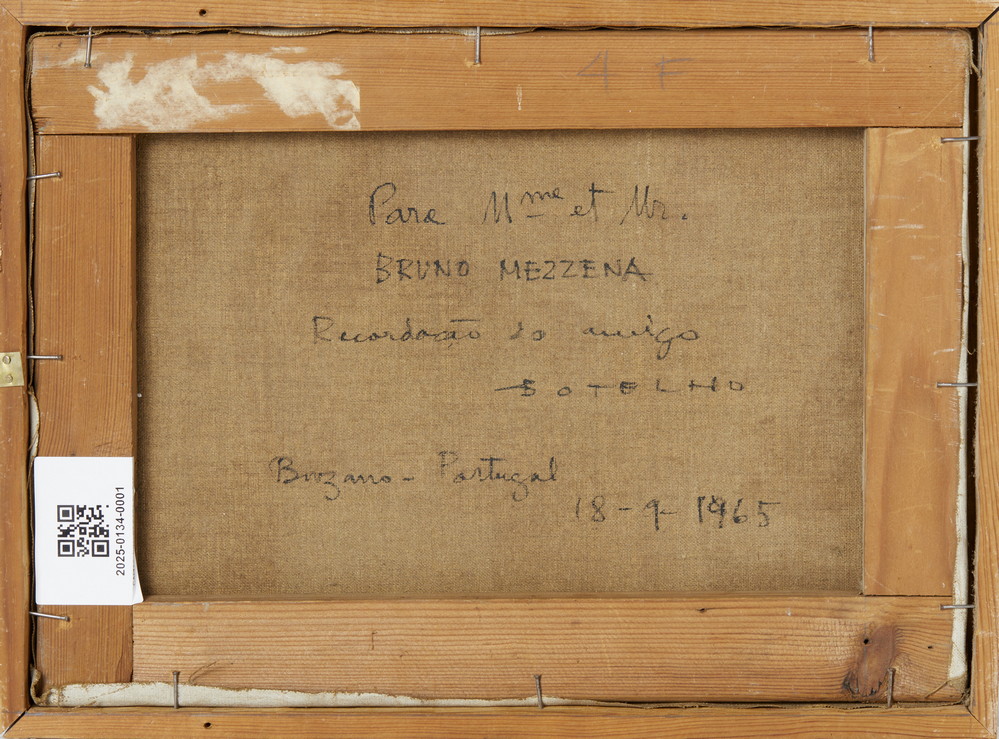 4 F
Para Mme et Mr.
BRUNO MEZZENA
Recordação do amigo
BOTELHO
Bozano - Portugal
18-9-1965
2025-0134-0001